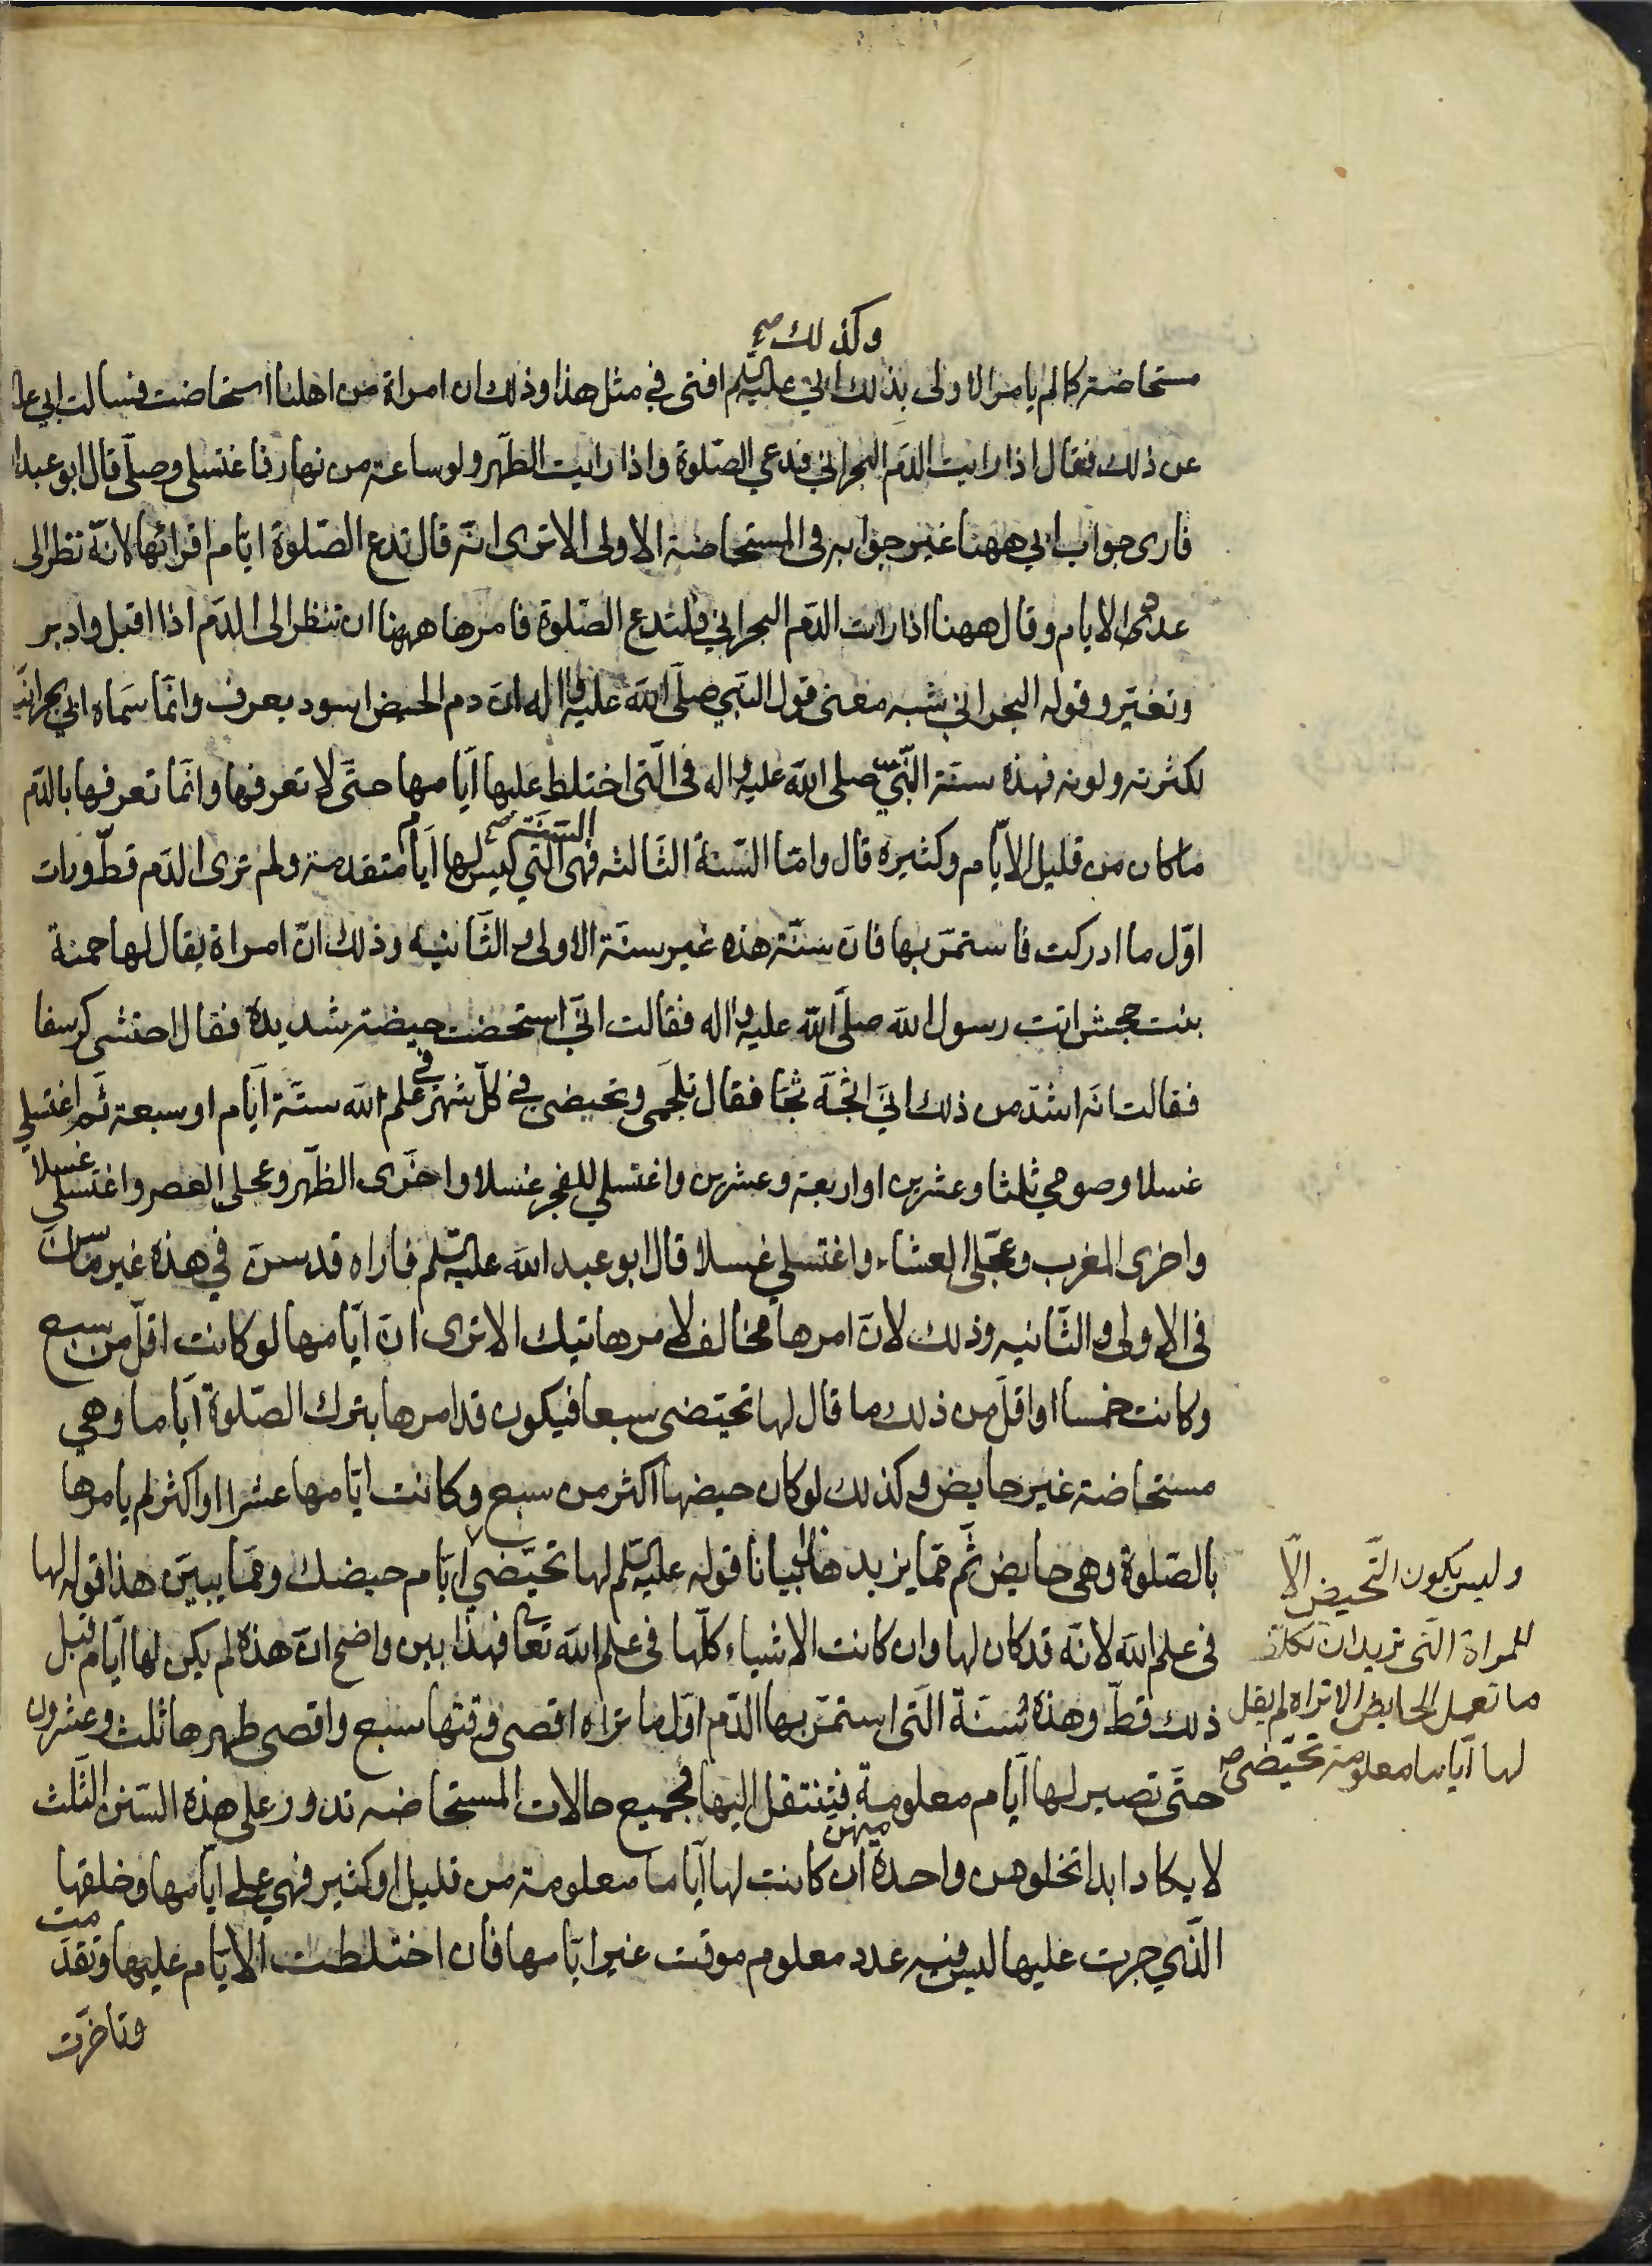 وكذلك صح
مستحاضة كما لم يامر الاولى بذلك ابي عليه السلم افتى في مثل هذا وذلك ان امراة من اهلنا استحاضت فسالت ابي عل
عن ذلك فقال اذا رايت الدم البحراني فدعي الصلوة واذا رايت الطهر ولو ساعة من نهار فاغتسلي وصلى قال ابو عبدا
فارى جواب ابي ههنا غير جوابه في المستحاضة الاولى الا ترى انه قال تدع الصلوة ايام اقرائها لانه نظر الى
عدد الايام وقال ههنا اذا رات الدم البحراني فلتدع الصلوة فامرها ههنا ان تنظر الى الدم اذا اقبل وادبر
وتغير وقوله البحراني شبه معنى قول النبي صلى الله عليه واله ان دم الحيض اسود يعرف وانما سماه ابي بحرانيا
لكثرته ولونه فهذه سنة النبي صلى الله عليه واله في التى اختلط عليها ايامها حتى لا تعرفها وانما تعرفها بالدم
ما كان من قليل الايام وكثيره قال واما السنة الثالثه فهى التي ليس لها ايام متقدمة ولم ترى الدم قط ورات
السنة صح
اول ما ادركت فاستمر بها فان سنة هذه غير سنة الاولى والثانيه وذلك ان امراة يقال لها حمنة
بنت جحش اتت رسول الله صلى الله عليه واله فقالت اني استحضت حيضة شديدة فقال احتشى كرسفا
فقالت انه اشد من ذلك اني اثجه ثجا فقال تلجمى وتحيضى في كل شهر في علم الله ستة ايام او سبعة ثم اغتسلي
غسلا وصومي ثلثا وعشرين او اربعة وعشرين واغتسلي للفجر غسلا واخرى الظهر وعجلى العصر واغتسلي غسلا
واخرى المغرب وعجلى العشاء واغتسلي غسلا قال ابو عبد الله عليه السلم فاراه قد سن في هذه غير ما سن
في الاولى والثانيه وذلك لان امرها مخالف لامر هاتيك الا ترى ان ايامها لو كانت اقل من سبع
وكانت خمسا او اقل من ذلك ما قال لها تحيضى سبعا فيكون قد امرها بترك الصلوة اياما وهي
مستحاضة غير حايض وكذلك لو كان حيضها اكثر من سبع وكانت ايامها عشرا او اكثر لم يامرها
بالصلوة وهى حايض ثم مما يزيد هذا بيانا قوله عليه السلم لها تحيضي ايام حيضك ومما يبين هذا قوله لها
في علم الله لانه قد كان لها وان كانت الاشياء كلها في علم الله تعا فهذا بين واضح ان هذه لم يكن لها ايام قبل
ذلك قط وهذه سنة التى استمر بها الدم اول ما تراه اقصى وقتها سبع واقصى طهرها ثلث وعشرون
حتى تصير لها ايام معلومة فتنتقل اليها فجميع حالات المستحاضه تدور على هذه السنن الثلث
لا يكاد ابدا تخلو من واحدة منهن ان كانت لها اياما معلومة من قليل او كثير فهي على ايامها وخلقها
الذي جرت عليها ليس فيه عدد معلوم موقت غير ايامها فان اختلطت الايام عليها وتقدمت
وتاخرت
وليس يكون التحيض الا
للمراة التى تريد ان تكلف
ما تعمل الحايض الا تراه لم يقل
لها اياما معلومة تحيضى صح